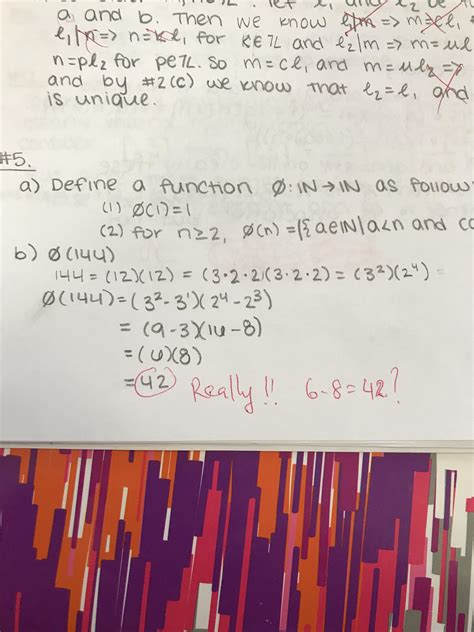 a and b. Then we know l₁|m => m=cl₁
l₁|n => n=kl₁ for k∈ℤ and l₂|m => m=ul
n=pl₂ for p∈ℤ. so m=cl₁ and m=ul₂ =>
and by #2(c) we know that l₂=l₁ and
is unique.
#5.
a) Define a function Ø:ℕ→ℕ as follow
(1) Ø(1)=1
(2) for n≥2, Ø(n)=|{a∈ℕ|a<n and
b) Ø(144)
144=(12)(12)=(3·2·2)(3·2·2)=(3²)(2⁴)
Ø(144)=(3²-3¹)(2⁴-2³)
=(9-3)(16-8)
=(6)(8)
=42 Really!! 6·8=42?